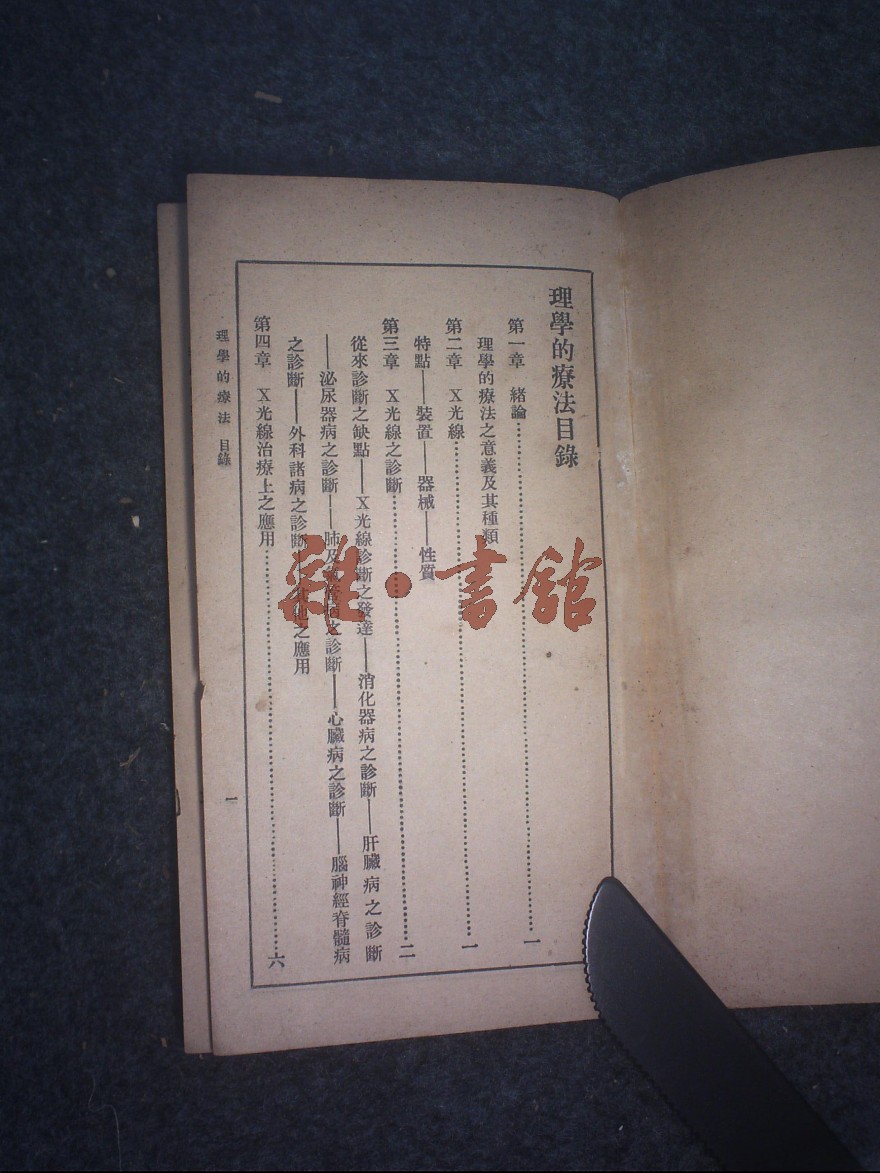 理學的療法目錄
第一章　緒論……一
理學的療法之意義及其種類
第二章　X光線……一
特點——裝置——器械——性質
第三章　X光線之診斷……二
從來診斷之缺點——X光線診斷之發達——消化器病之診斷——肝臟病之診斷
——泌尿器病之診斷——肺及病之診斷——心臟病之診斷——腦神經脊髓病
之診斷——外科諸病之診斷——其他之應用
第四章　X光線治療上之應用……六
理學的療法　目錄
一
雜·書館